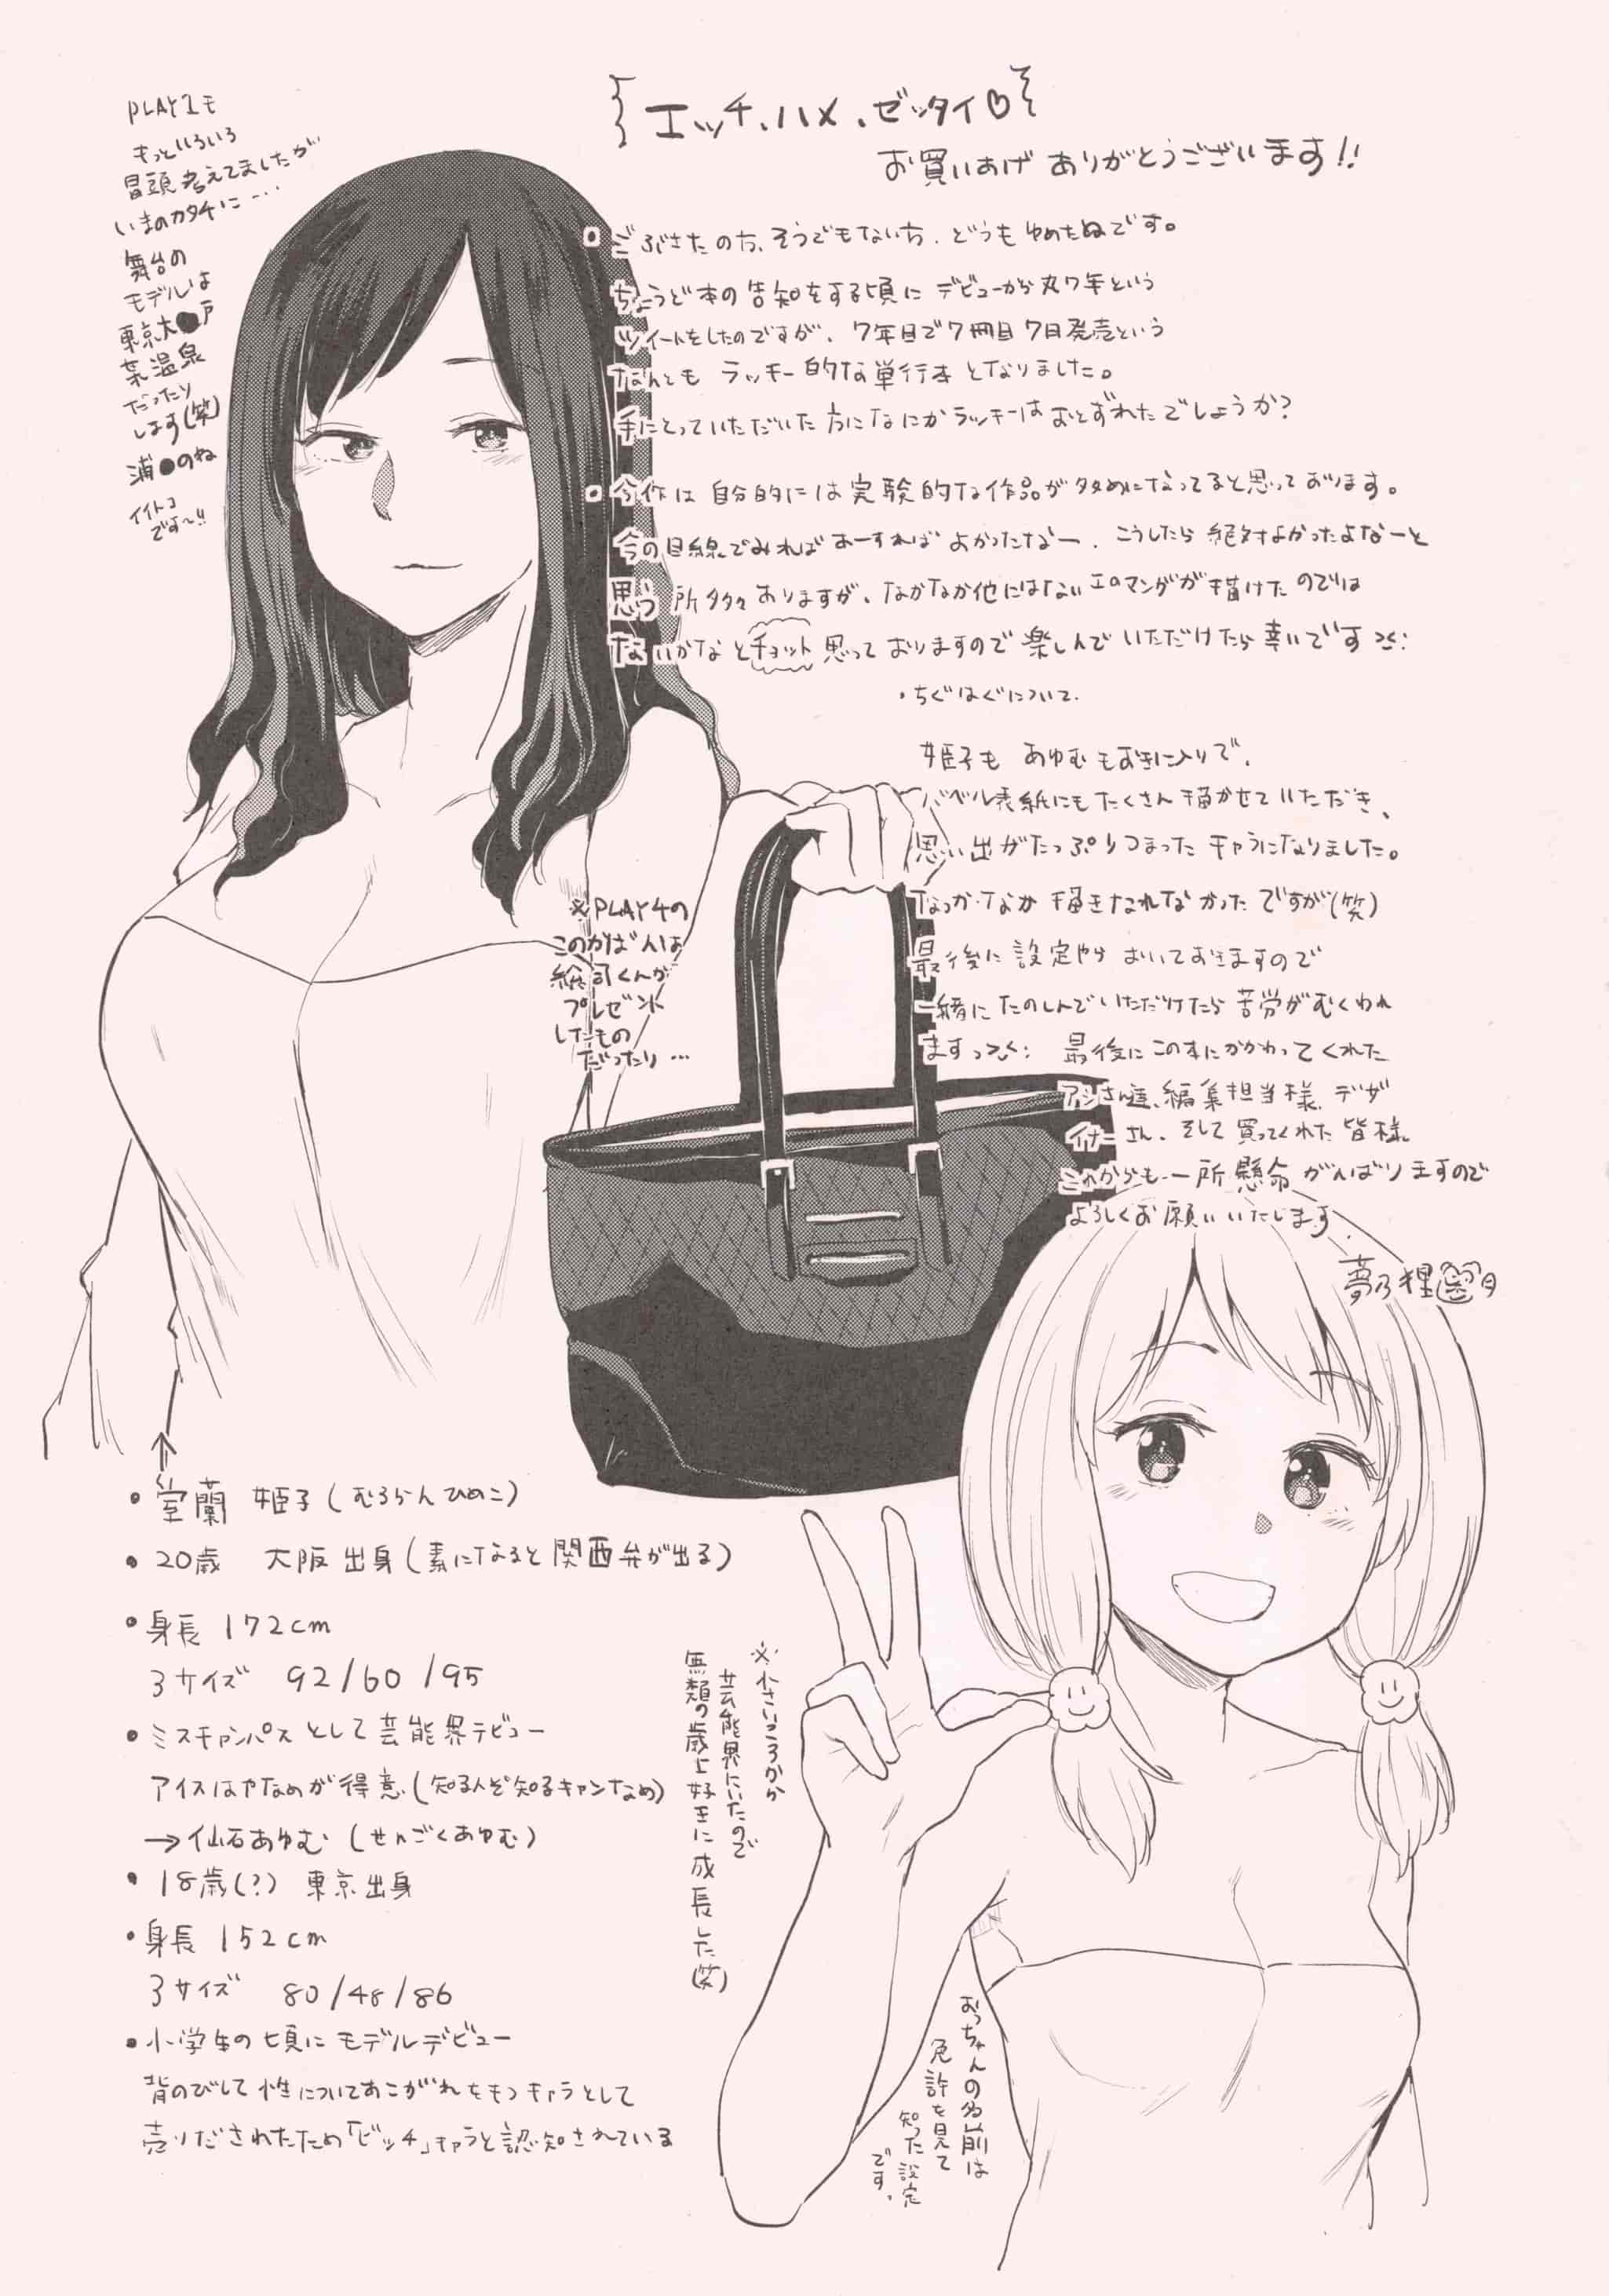 エッチ、ハメ、ゼッタイ♡
お買いあげ ありがとうございます!!
PLAY1も
もっといろいろ
冒頭考えてましたが
いまのカタチに…
舞台の
モデルは
東京大●戸
温泉
だったり
します(笑)
浦●のね
イイトコ
です〜!!
ごぶさたの方、そうでもない方、どうも ゆめたぬです。
ちょうど本の告知をする頃に デビューから丸7年という
ツイートをしたのですが、7年目で7冊目7日発売という
なんとも ラッキー的な単行本となりました。
手にとっていただいた方になにかラッキーはおとずれたでしょうか?
今作は 自分的には実験的な作品が多めになってると思っております。
今の目線でみればあーすれば よかったなー、こうしたら絶対よかったよなーと
思う 所多々ありますが、なかなか他にはないエロマンガが描けたのでは
ないかなとチョット思っておりますので楽しんでいただけたら幸いです
・ちぐはぐについて.
姫子も あゆむもお気に入りで、
バベル表紙にもたくさん描かせていただき、
思い出がたっぷりつまったキャラになりました。
なっかなか描きなれなかったですが(笑)
最後に設定やら おいておきますので
一緒にたのしんでいただけたら苦労がむくわれ
ますっ
最後にこの本にかかわってくれた
アシさん達、編集担当様、デザ
イナーさん、そして買ってくれた皆様
これからも一所懸命がんばりますので
よろしくお願いいたします.
夢乃狸
※PLAY4の
このかばんは
くんが
プレゼント
したもの
だったり…
・室蘭 姫子(むろらんひめこ)
・20歳 大阪出身(素になると関西弁が出る)
・身長 172cm
3サイズ 92/60/95
・ミスキャンパスとして芸能界デビュー
アイスはやなめが得意(知る人ぞ知るキャンなめ)
→仙石あゆむ(せんごくあゆむ)
・18歳(?) 東京出身
・身長 152cm
3サイズ 80/48/86
・小学生の頃に モデルデビュー
背のびして性についてあこがれをもつキャラとして
売りだされたため「ビッチ」キャラと認知されている
※小さいころから
芸能界にいたので
無類の歳上好きに成長した(笑)
おっちゃんの名前は
免許を見て
知った設定
です。